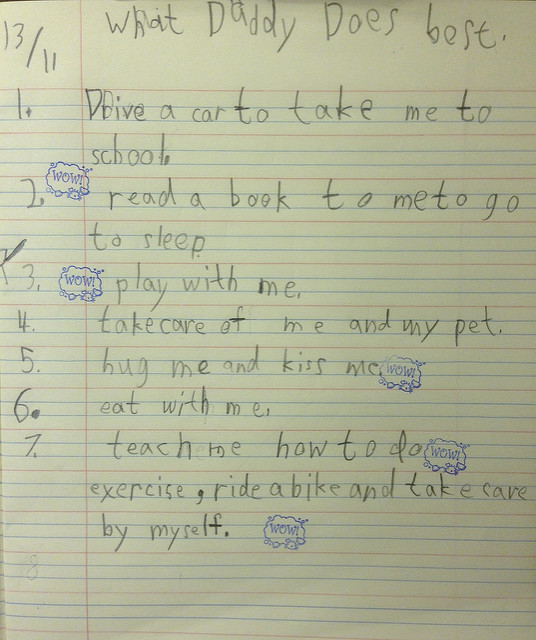 What Daddy Does best.
13/11
1. Drive a car to take me to
school.
WOW!
2. read a book to me to go
to sleep
3. WOW! play with me.
4. take care of me and my pet.
5. hug me and kiss me WOW!
6. eat with me.
7. teach me how to do WOW!
exercise, ride a bike and take care
by myself. WOW!
8